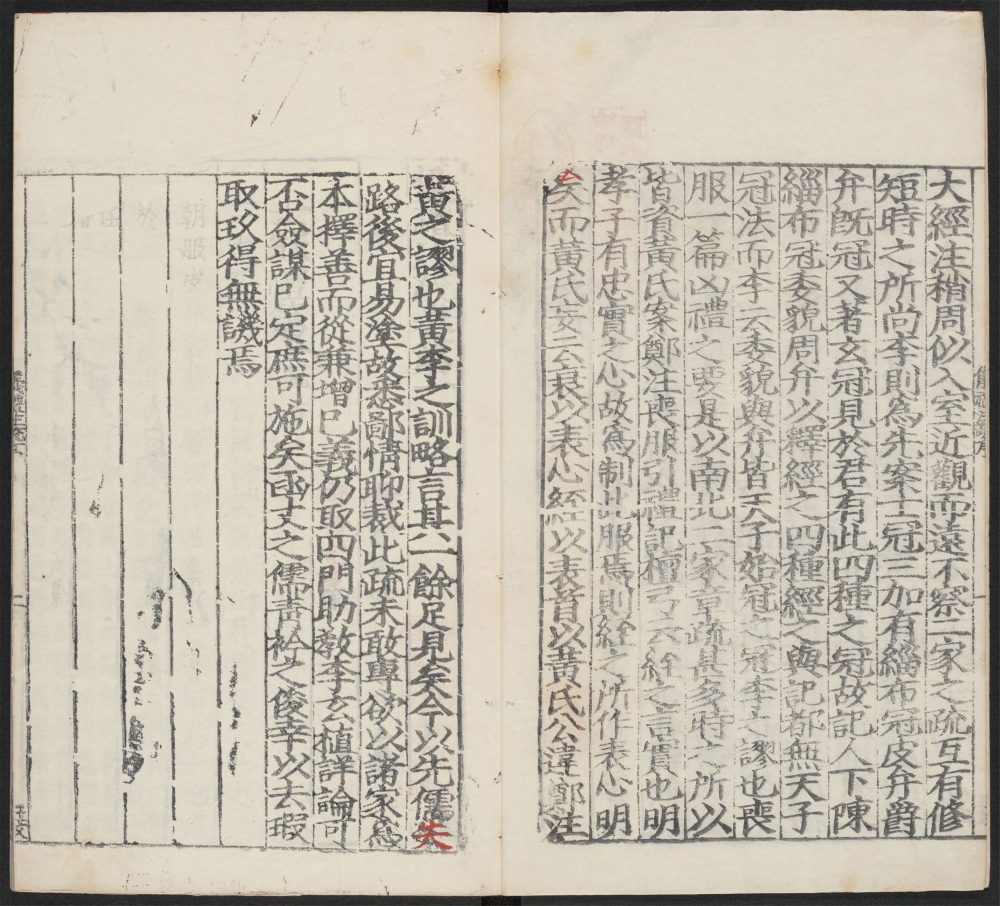 大經注稍周似入室近觀而遠不察二家之疏互有修
短時之所尚李則為先案士冠三加有緇布冠皮弁爵
弁既冠又著玄冠見於君有此四種之冠故記人下陳
緇布冠委貌周弁以釋經之四種經之與記都無天子
冠法而李云委貌與弁皆天子始冠之冠李之謬也喪
服一篇凶禮之要是以南北二家章疏甚多時之所以
皆資黃氏案鄭注喪服引禮記檀弓云絰之言實也明
孝子有忠實之心故為制此服焉則絰之所作表心明
矣而黃氏妄云衰以表心絰以表首以黃氏公違鄭注
黃之謬也黃李之訓略言其一餘足見矣今以先儒失
路後宜易塗故悉鄙情聊裁此疏未敢專欲以諸家為
本擇善而從兼增己義仍取四門助教李玄植詳論可
否僉謀已定庶可施矣函丈之儒青衿之俊幸以去瑕
取玖得無譏焉